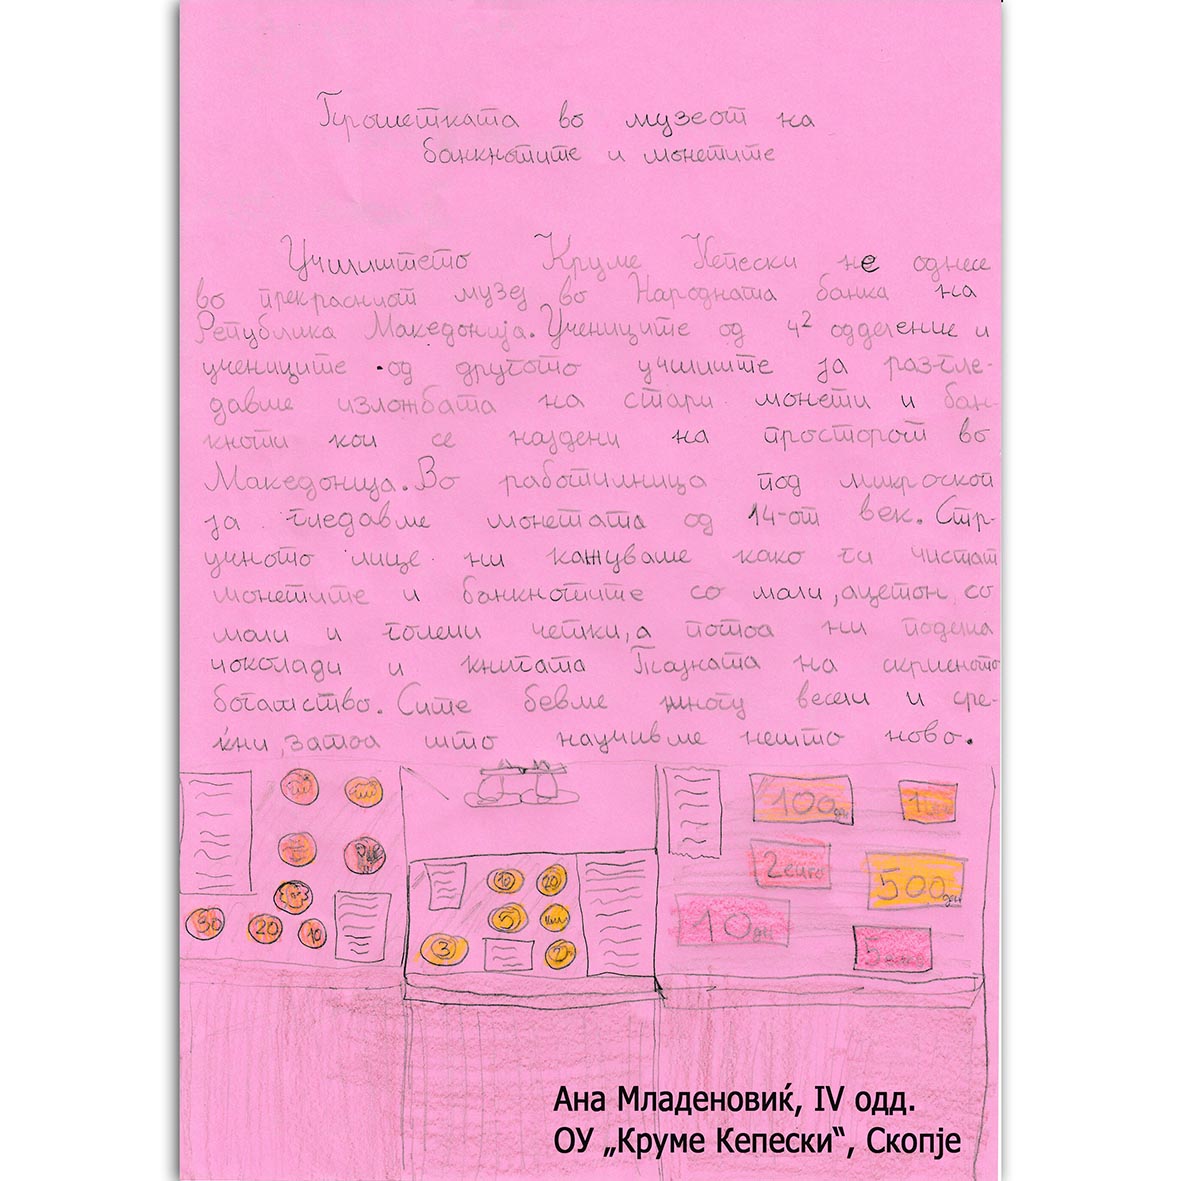 Прошетката во музеот на
банкнотите и монетите
Училиштето Круме Кепески не однесе
во прекрасниот музеј во Народната банка на
Република Македонија. Учениците од 4² одделение и
учениците од другото училиште ја разгле-
давме изложбата на стари монети и бан-
кноти кои се најдени на просторот во
Македонија. Во работилница под микроскоп
ја гледавме монетата од 14-от век. Стр-
учното лице ни кажуваше како ги чистат
монетите и банкнотите со мали, ацетон, со
мали и големи четки, а потоа ни подели
чоколади и книгата Тајната на скриеното
богатство. Сите бевме многу весели и сре-
ќни, затоа што научивме нешто ново.
30 20 10
10 20
5
3 2
100 ден 1
2 euro 500 ден
10 ден 5
Ана Младеновиќ, IV одд.
ОУ „Круме Кепески“, Скопје